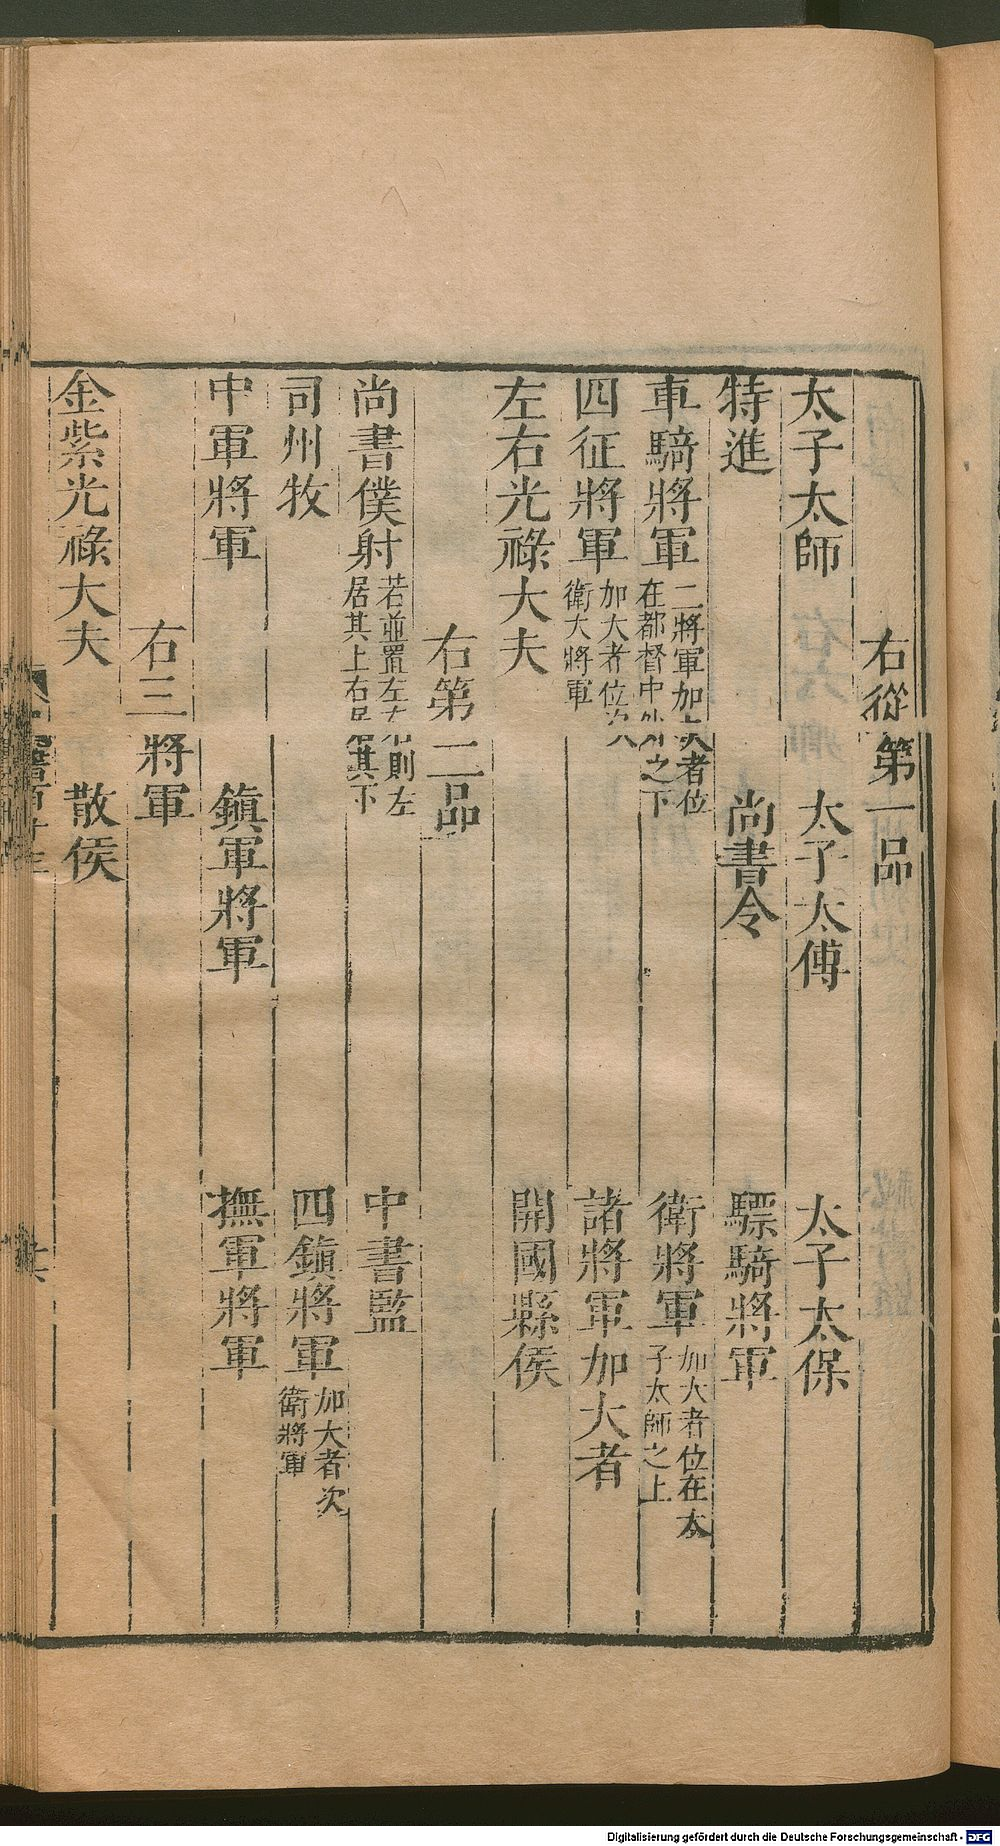 右從第一品
太子太師 太子太傅 太子太保
特進 尚書令 驃騎將軍
車騎將軍 二將軍加大者位在都督中外之下 衛將軍 加大者位在太子太師之上
四征將軍 加大者位次衛大將軍 諸將軍加大者
左右光祿大夫 開國縣侯
右第二品
尚書僕射 若並置左右則左居其上右居其下 中書監
司州牧 四鎮將軍 加大者次衛將軍
中軍將軍 鎮軍將軍 撫軍將軍
右三將軍
金紫光祿大夫 散侯
Digitalisierung gefördert durch die Deutsche Forschungsgemeinschaft - DFG